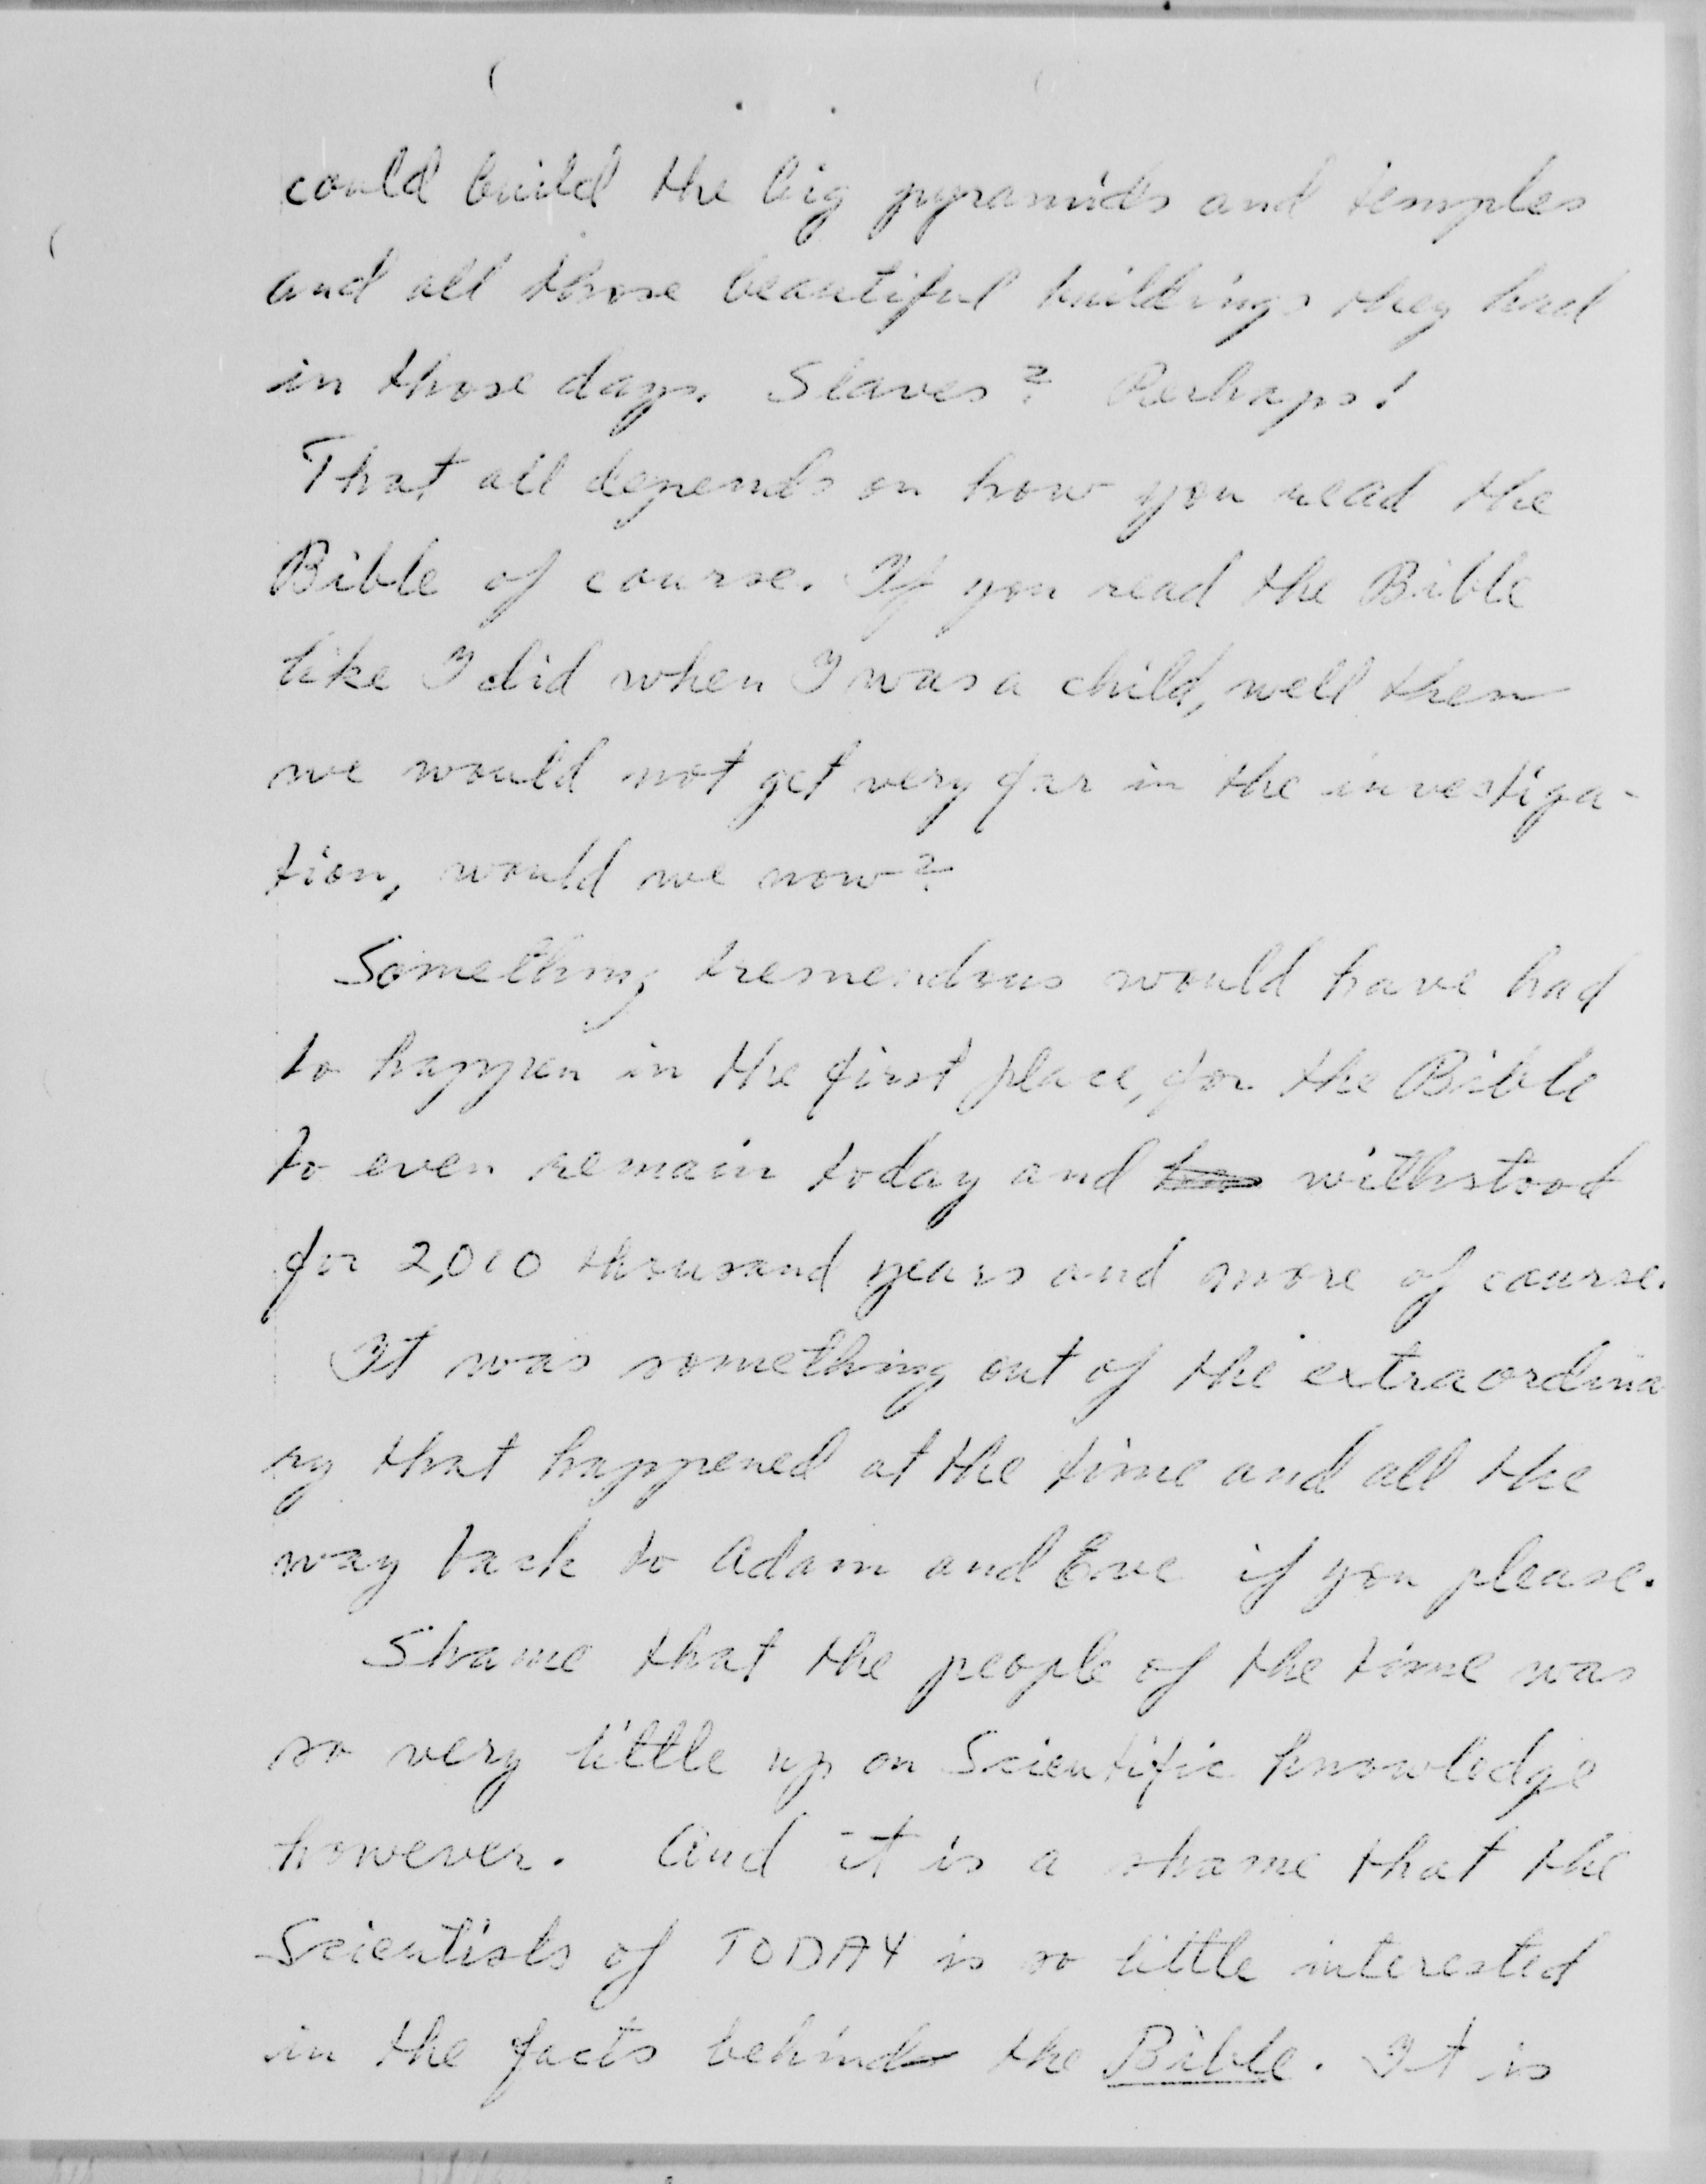 could build the big pyramids and temples
and all those beautiful buildings they had
in those days. Slaves? Perhaps!
That all depends on how you read the
Bible of course. If you read the Bible
like I did when I was a child, well then
we would not get very far in the investiga-
tion, would we now?
Something tremendous would have had
to happen in the first place, for the Bible
to even remain today and withstood
for 2,000 thousand years and more of course.
It was something out of the extraordina
ry that happened at the time and all the
way back to Adam and Eve if you please.
Shame that the people of the time was
so very little up on Scientific knowledge
however. And it is a shame that the
Scientists of TODAY is so little interested
in the facts behind the Bible. It is